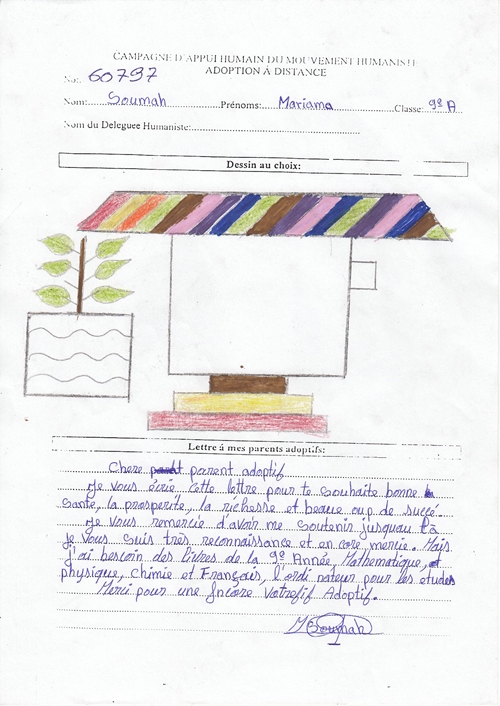 CAMPAGNE D'APPUI HUMAIN DU MOUVEMENT HUMANISTE
ADOPTION À DISTANCE
No:. 60797
Nom:......Soumah......Prénoms:......Mariama......Classe:9è A
Nom du Deleguee Humaniste:......
Dessin au choix:
Lettre à mes parents adoptifs:
Chere parent adoptif
Je vous écrie cette lettre pour te souhaite bonne
Sante, la prosperite, la richesse et beauc oup de succé.
Je vous remercie d'avoir me soutenir jusquau là
je vous suis très reconnaissance et en core mercie. Mais
j'ai besoin des livres de la 9è Année, Mathematique, et
physique, chimie et Français, l'ordi nateur pour les etudes
Merci pour une Encore Votrefif Adoptif.
MSoumah